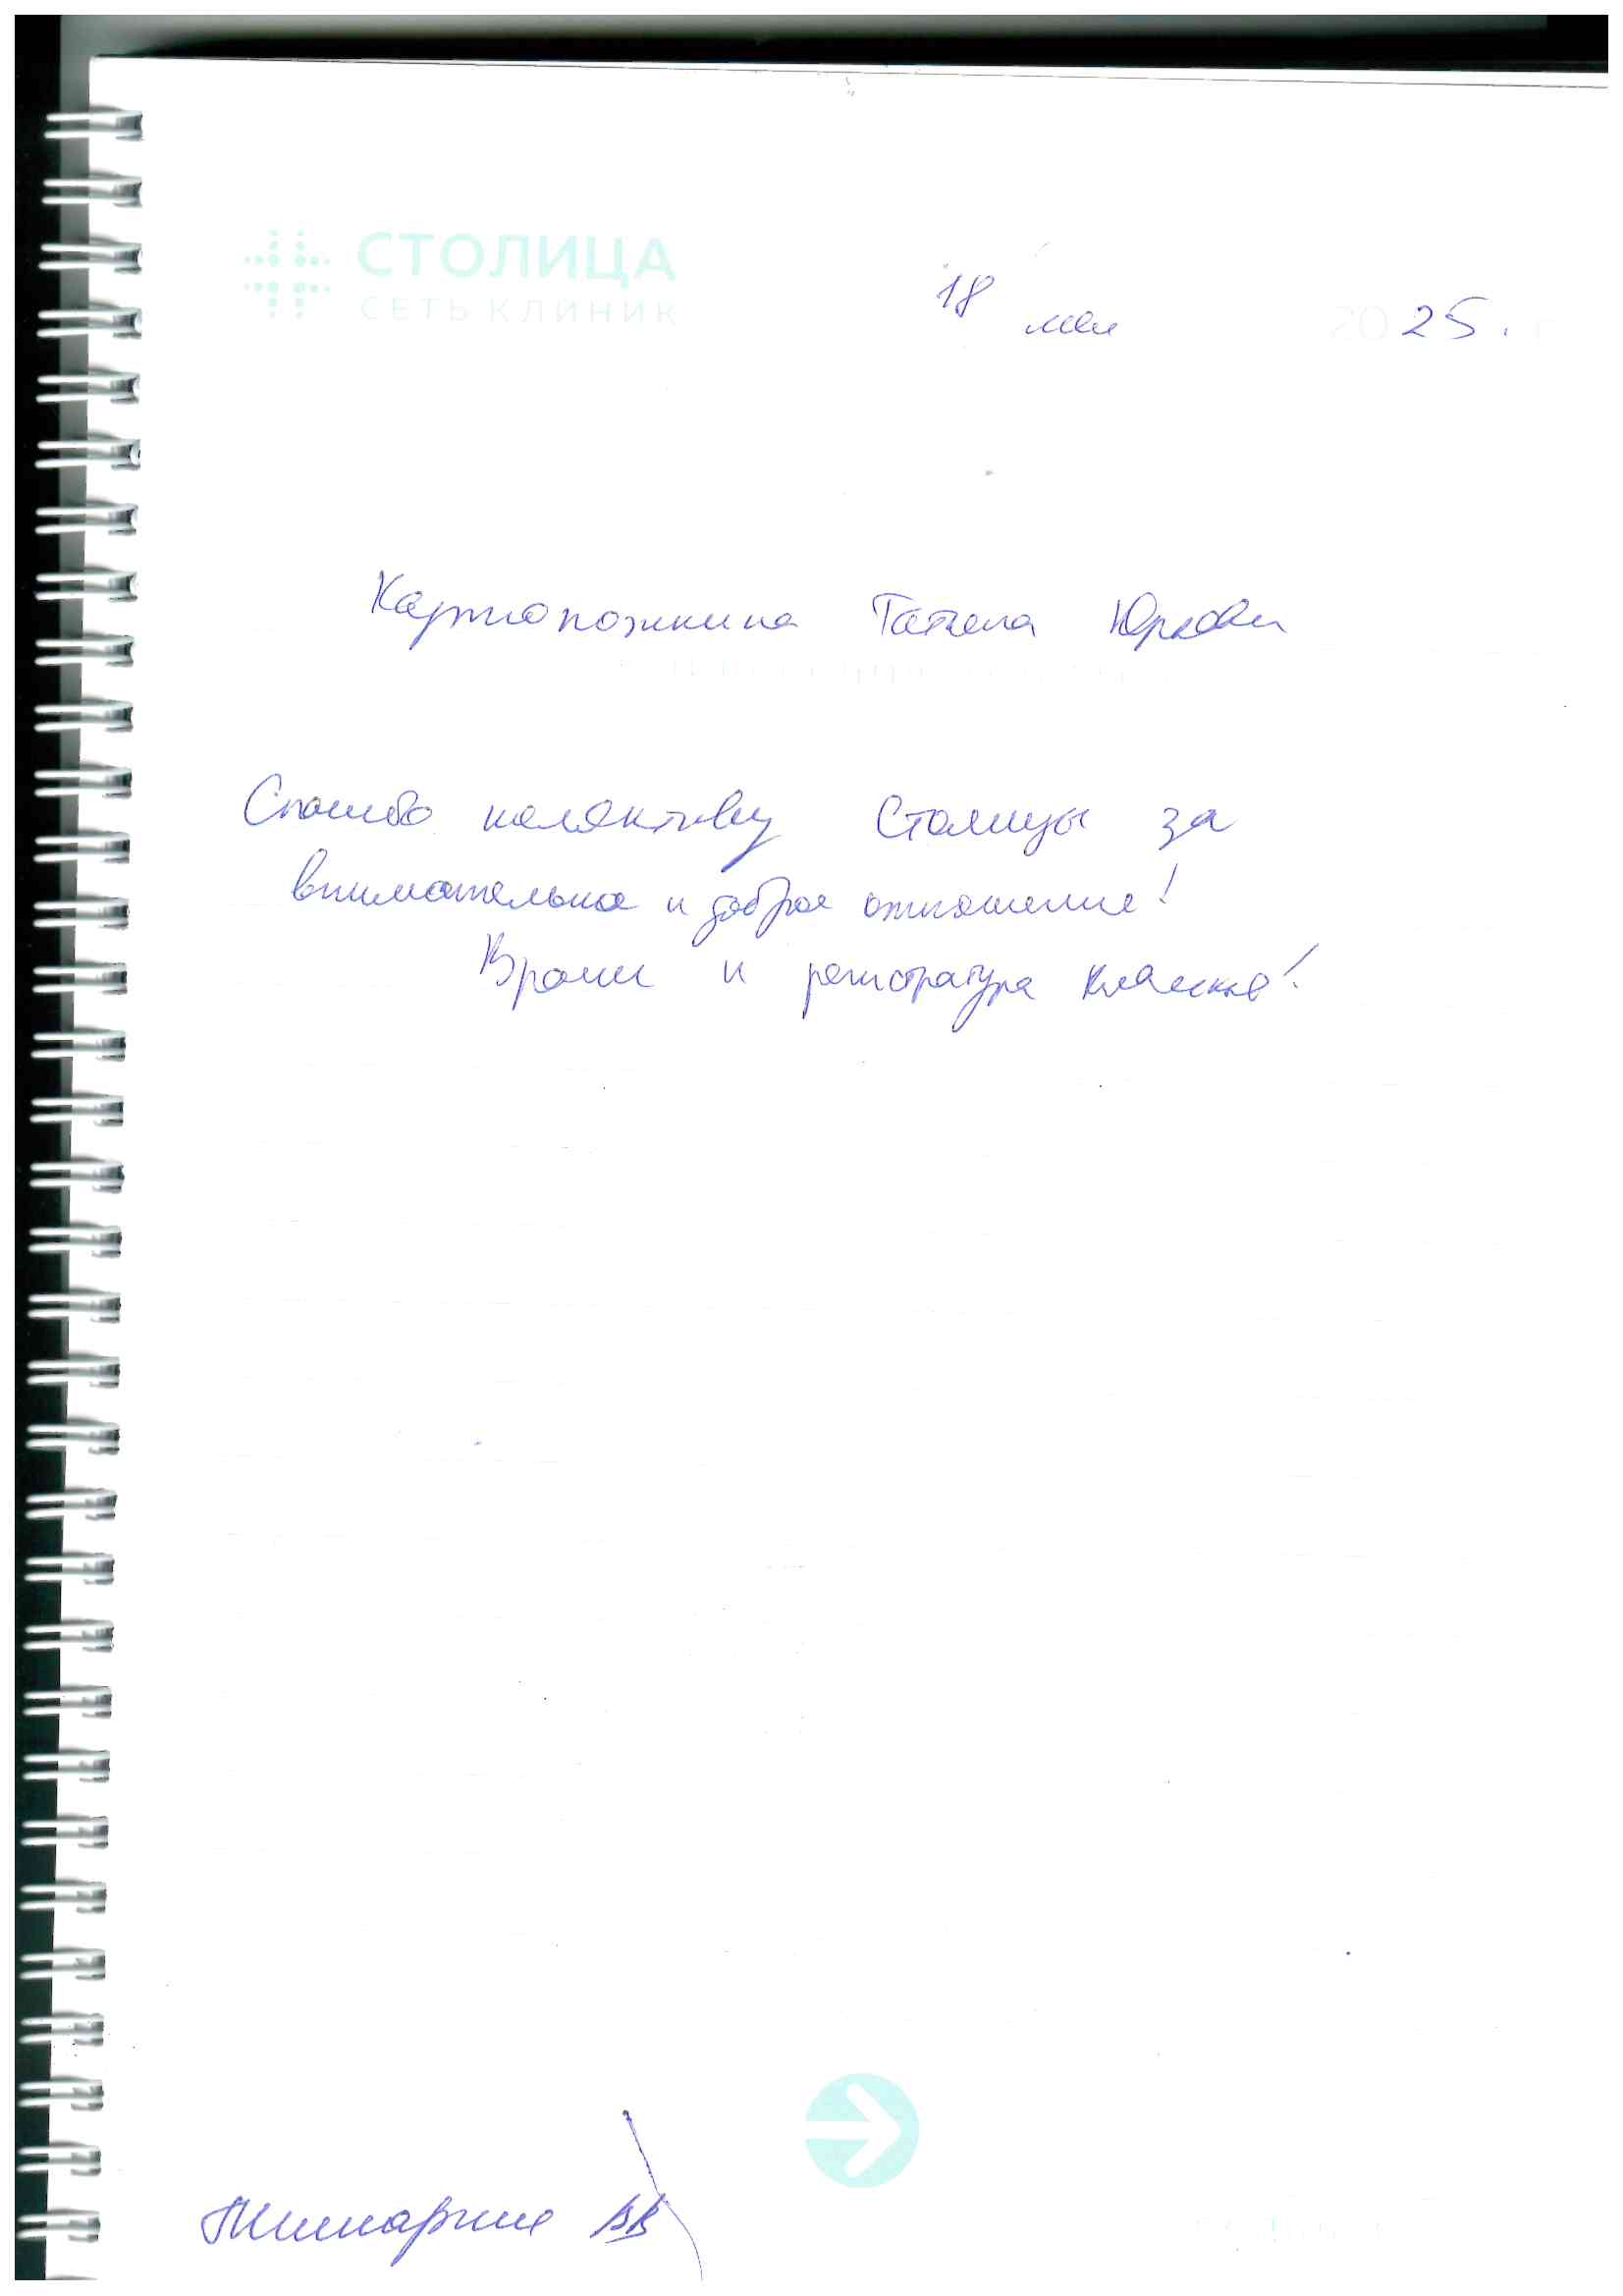 СТОЛИЦА
СЕТЬ КЛИНИК
18 мая 2025.
Татьяна Юрьевна
Спасибо коллективу Столицы за
внимательное и доброе отношение!
Врачи и регистратура классные!